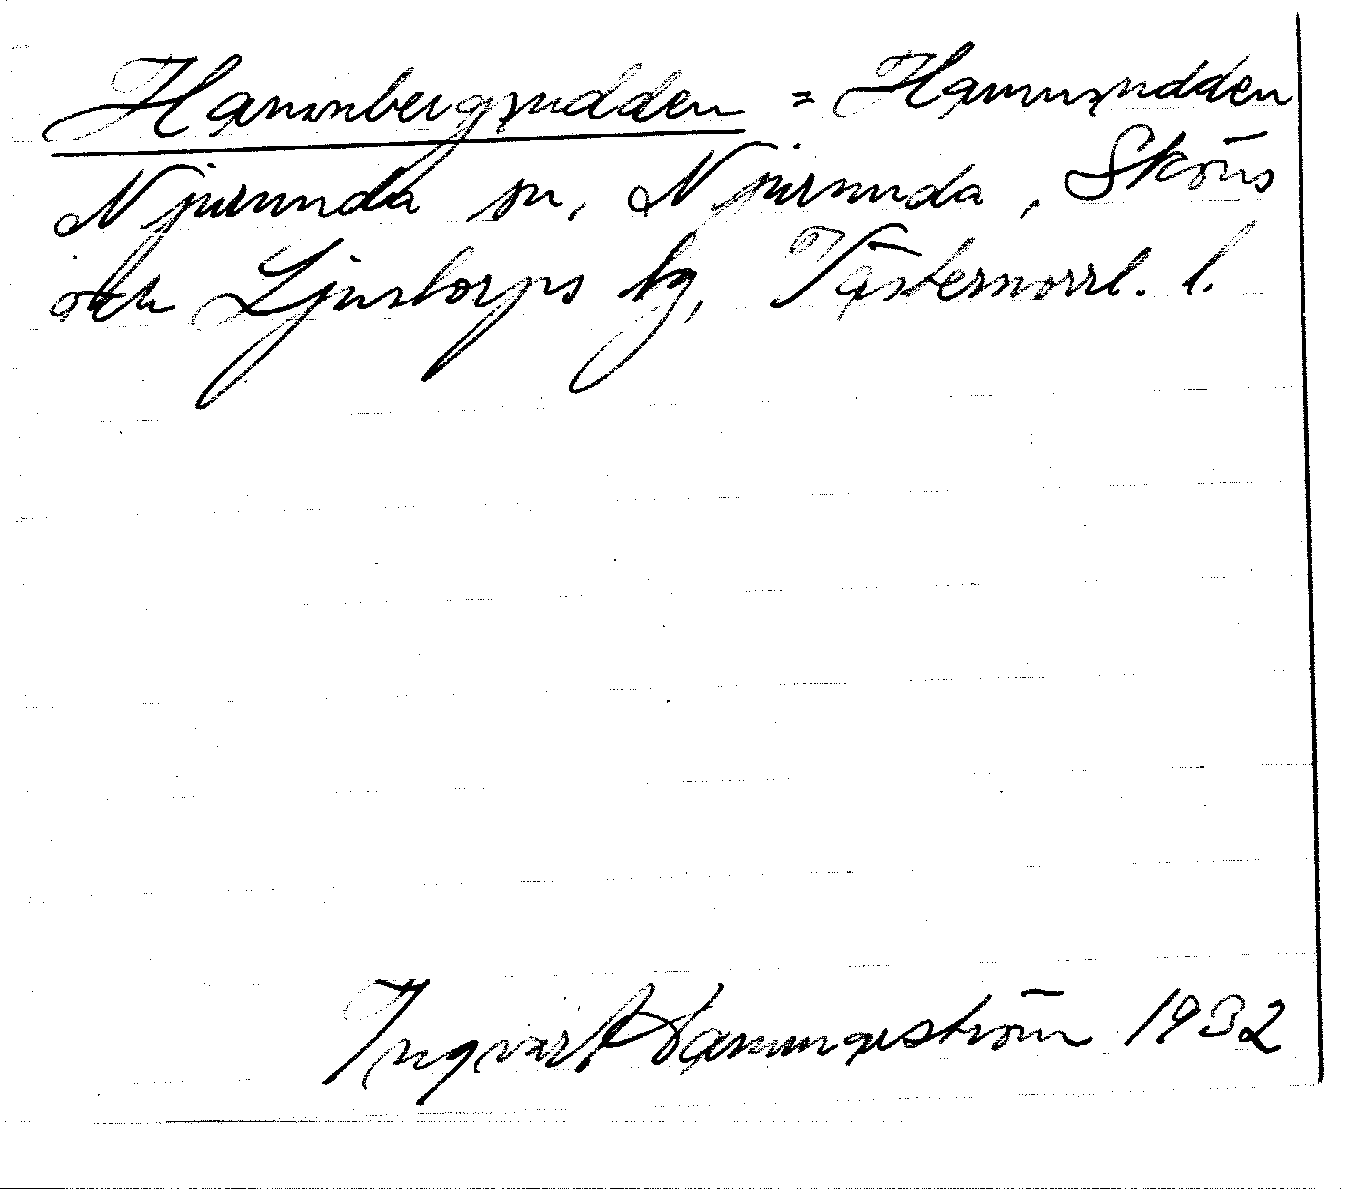 Hamnbergsudden = Hamnudden
Njurunda sn, Njurunda, Sköns
och Ljustorps tg, Västernorrl. l.
Ingvar Hammarström 1932